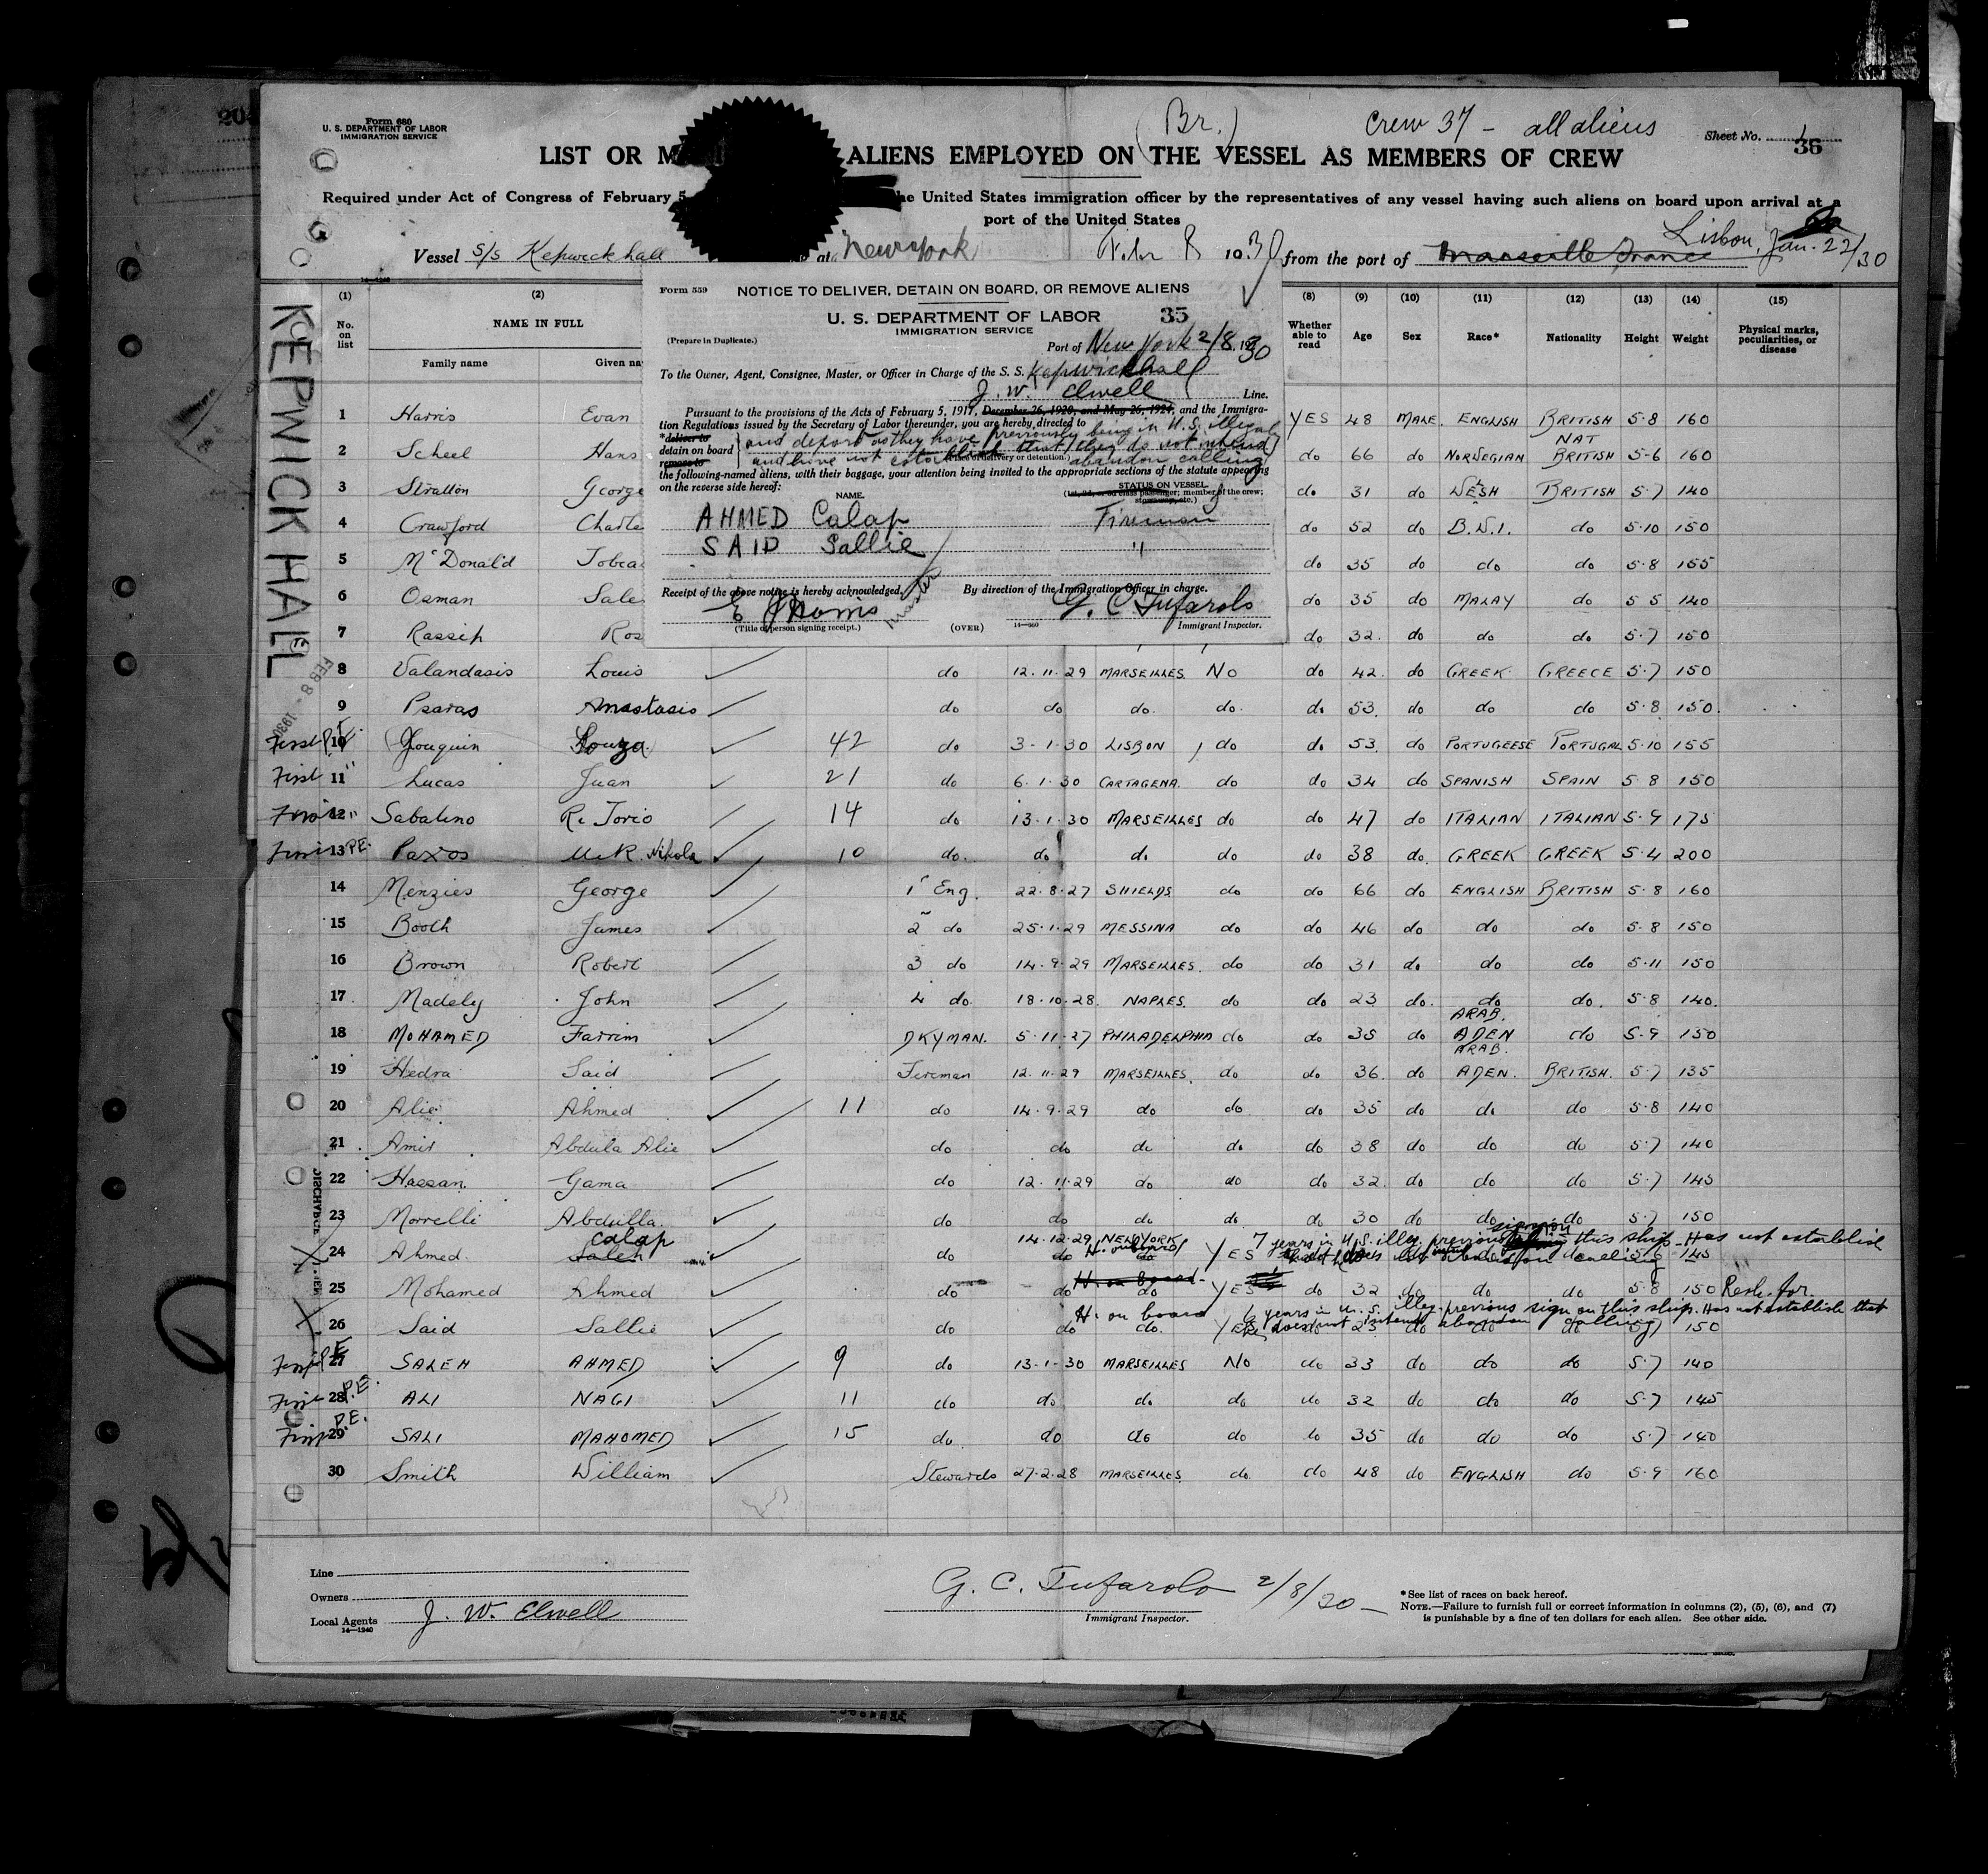 204
Form 680
U. S. DEPARTMENT OF LABOR
IMMIGRATION SERVICE
(Br.)
Crew 37 - all aliens
Sheet No. 1
36
LIST OR M ALIENS EMPLOYED ON THE VESSEL AS MEMBERS OF CREW
Required under Act of Congress of February 5 he United States immigration officer by the representatives of any vessel having such aliens on board upon arrival at a
port of the United States
Vessel S/S Kepwickhall at New York Feb 8 1930 from the port of Marseille France Lisbon, Jan. 22/30
14—1240
KEPWICK HALL
FEB 8 - 1930
(1) (2) (8) (9) (10) (11) (12) (13) (14) (15)
No. on list NAME IN FULL Whether able to read Age Sex Race* Nationality Height Weight Physical marks, peculiarities, or disease
Family name Given na
Form 559 NOTICE TO DELIVER, DETAIN ON BOARD, OR REMOVE ALIENS
U. S. DEPARTMENT OF LABOR 35
IMMIGRATION SERVICE
(Prepare in Duplicate.)
Port of New York 2/8, 1930
To the Owner, Agent, Consignee, Master, or Officer in Charge of the S. S. Kepwickhall
J. W. Elwell Line.
Pursuant to the provisions of the Acts of February 5, 1917, December 26, 1920, and May 26, 1924, and the Immigra-
tion Regulations issued by the Secretary of Labor thereunder, you are hereby directed to
*deliver to
detain on board
remove to
and deport as they have previously being in U.S. illegal
and have not establish that they do not intend
abandon calling
the following-named aliens, with their baggage, your attention being invited to the appropriate sections of the statute appearing
on the reverse side hereof:
STATUS ON VESSEL
NAME. (1st, 2d, or 3d class passenger; member of the crew; stowaway, etc.)
AHMED Calap Fireman
SAID Sallie "
Receipt of the above notice is hereby acknowledged, By direction of the Immigration Officer in charge.
master G. C. Tufarolo
(Title of person signing receipt.) (OVER) 14—560 Immigrant Inspector.
1 Harris Evan YES 48 MALE. ENGLISH BRITISH 5-8 160
2 Scheel Hans do 66 do NORWEGIAN NAT BRITISH 5-6 160
3 Stratton George do 31 do WELSH BRITISH 5-7 140
4 Crawford Charle do 52 do B.W.I. do 5-10 150
5 McDonald Tobia do 35 do do do 5-8 155
6 Osman Sale do 35 do MALAY do 5 5 140
7 Rassip Ros do 32 do do do 5-7 150
8 Valandasis Louis do 12.11.29 MARSEILLES No do 42 do GREEK GREECE 5-7 150
9 Psaras Anastasis do do do do do 53 do do do 5-8 150
First P.E. 10 Jouquin Souza 42 do 3-1-30 LISBON do do 53 do PORTUGEESE PORTUGAL 5-10 155
First " 11 Lucas Juan 21 do 6.1.30 CARTAGENA do do 34 do SPANISH SPAIN 5-8 150
First " 12 Sabatino Re Torio 14 do 13-1-30 MARSEILLES do do 47 do ITALIAN ITALIAN 5-9 175
First P.E. 13 Paxos Nikola 10 do do do do do 38 do GREEK GREEK 5-4 200
14 Menzies George 1st Eng. 22-8-27 SHIELDS do do 66 do ENGLISH BRITISH 5-8 160
15 Booth James 2 do 25-1-29 MESSINA do do 46 do do do 5-8 150
16 Brown Robert 3 do 14-9-29 MARSEILLES do do 31 do do do 5-11 150
17 Madely John 4 do 18-10-28 NAPLES do do 23 do do do 5-8 140
18 MOHAMED Farrim DKYMAN. 5-11-27 PHILADELPHIA do do 35 do ARAB. ADEN do 5-9 150
19 Hedra Said Fireman 12.11.29 MARSEILLES do do 36 do ARAB. ADEN. BRITISH. 5-7 135
20 Alie Ahmed 11 do 14-9-29 do do do 35 do do do 5-8 140
21 Amir Abdula Alie do do do do do 38 do do do 5-7 140
22 Hassan Gama do 12.11.29 do do do 32 do do do 5-7 145
23 Morrelli Abdulla do do do do do 30 do do do 5-7 150
14-12-29 NEW YORK 7 years in U.S. illeg. previous sign on this ship. Has not establish
24 Ahmed Saleh Calap do do H. on board do YES that he does not intend abandon calling 5-6 145
25 Mohamed Ahmed do do H. on Board do YES do 32 do do do 5-8 150
H. on board 6 years in U.S. illeg. previous sign on this ship. Has not establish that
26 Said Sallie do do do YES he does not intend abandon calling 5-7 150
First P.E. 27 SALEH AHMED 9 do 13-1-30 MARSEILLES No do 33 do do do 5-7 140
First P.E. 28 ALI NAGI 11 do do do do do 32 do do do 5-7 145
First P.E. 29 SALI MAHOMED 15 do do do do do 35 do do do 5-7 140
30 Smith William Stewards 27-2-28 MARSEILLES do do 48 do ENGLISH do 5-9 160
Line
Owners
Local Agents J. W. Elwell
14—1240
G. C. Tufarolo 2/8/30
Immigrant Inspector.
*See list of races on back hereof.
NOTE.—Failure to furnish full or correct information in columns (2), (5), (6), and (7)
is punishable by a fine of ten dollars for each alien. See other side.